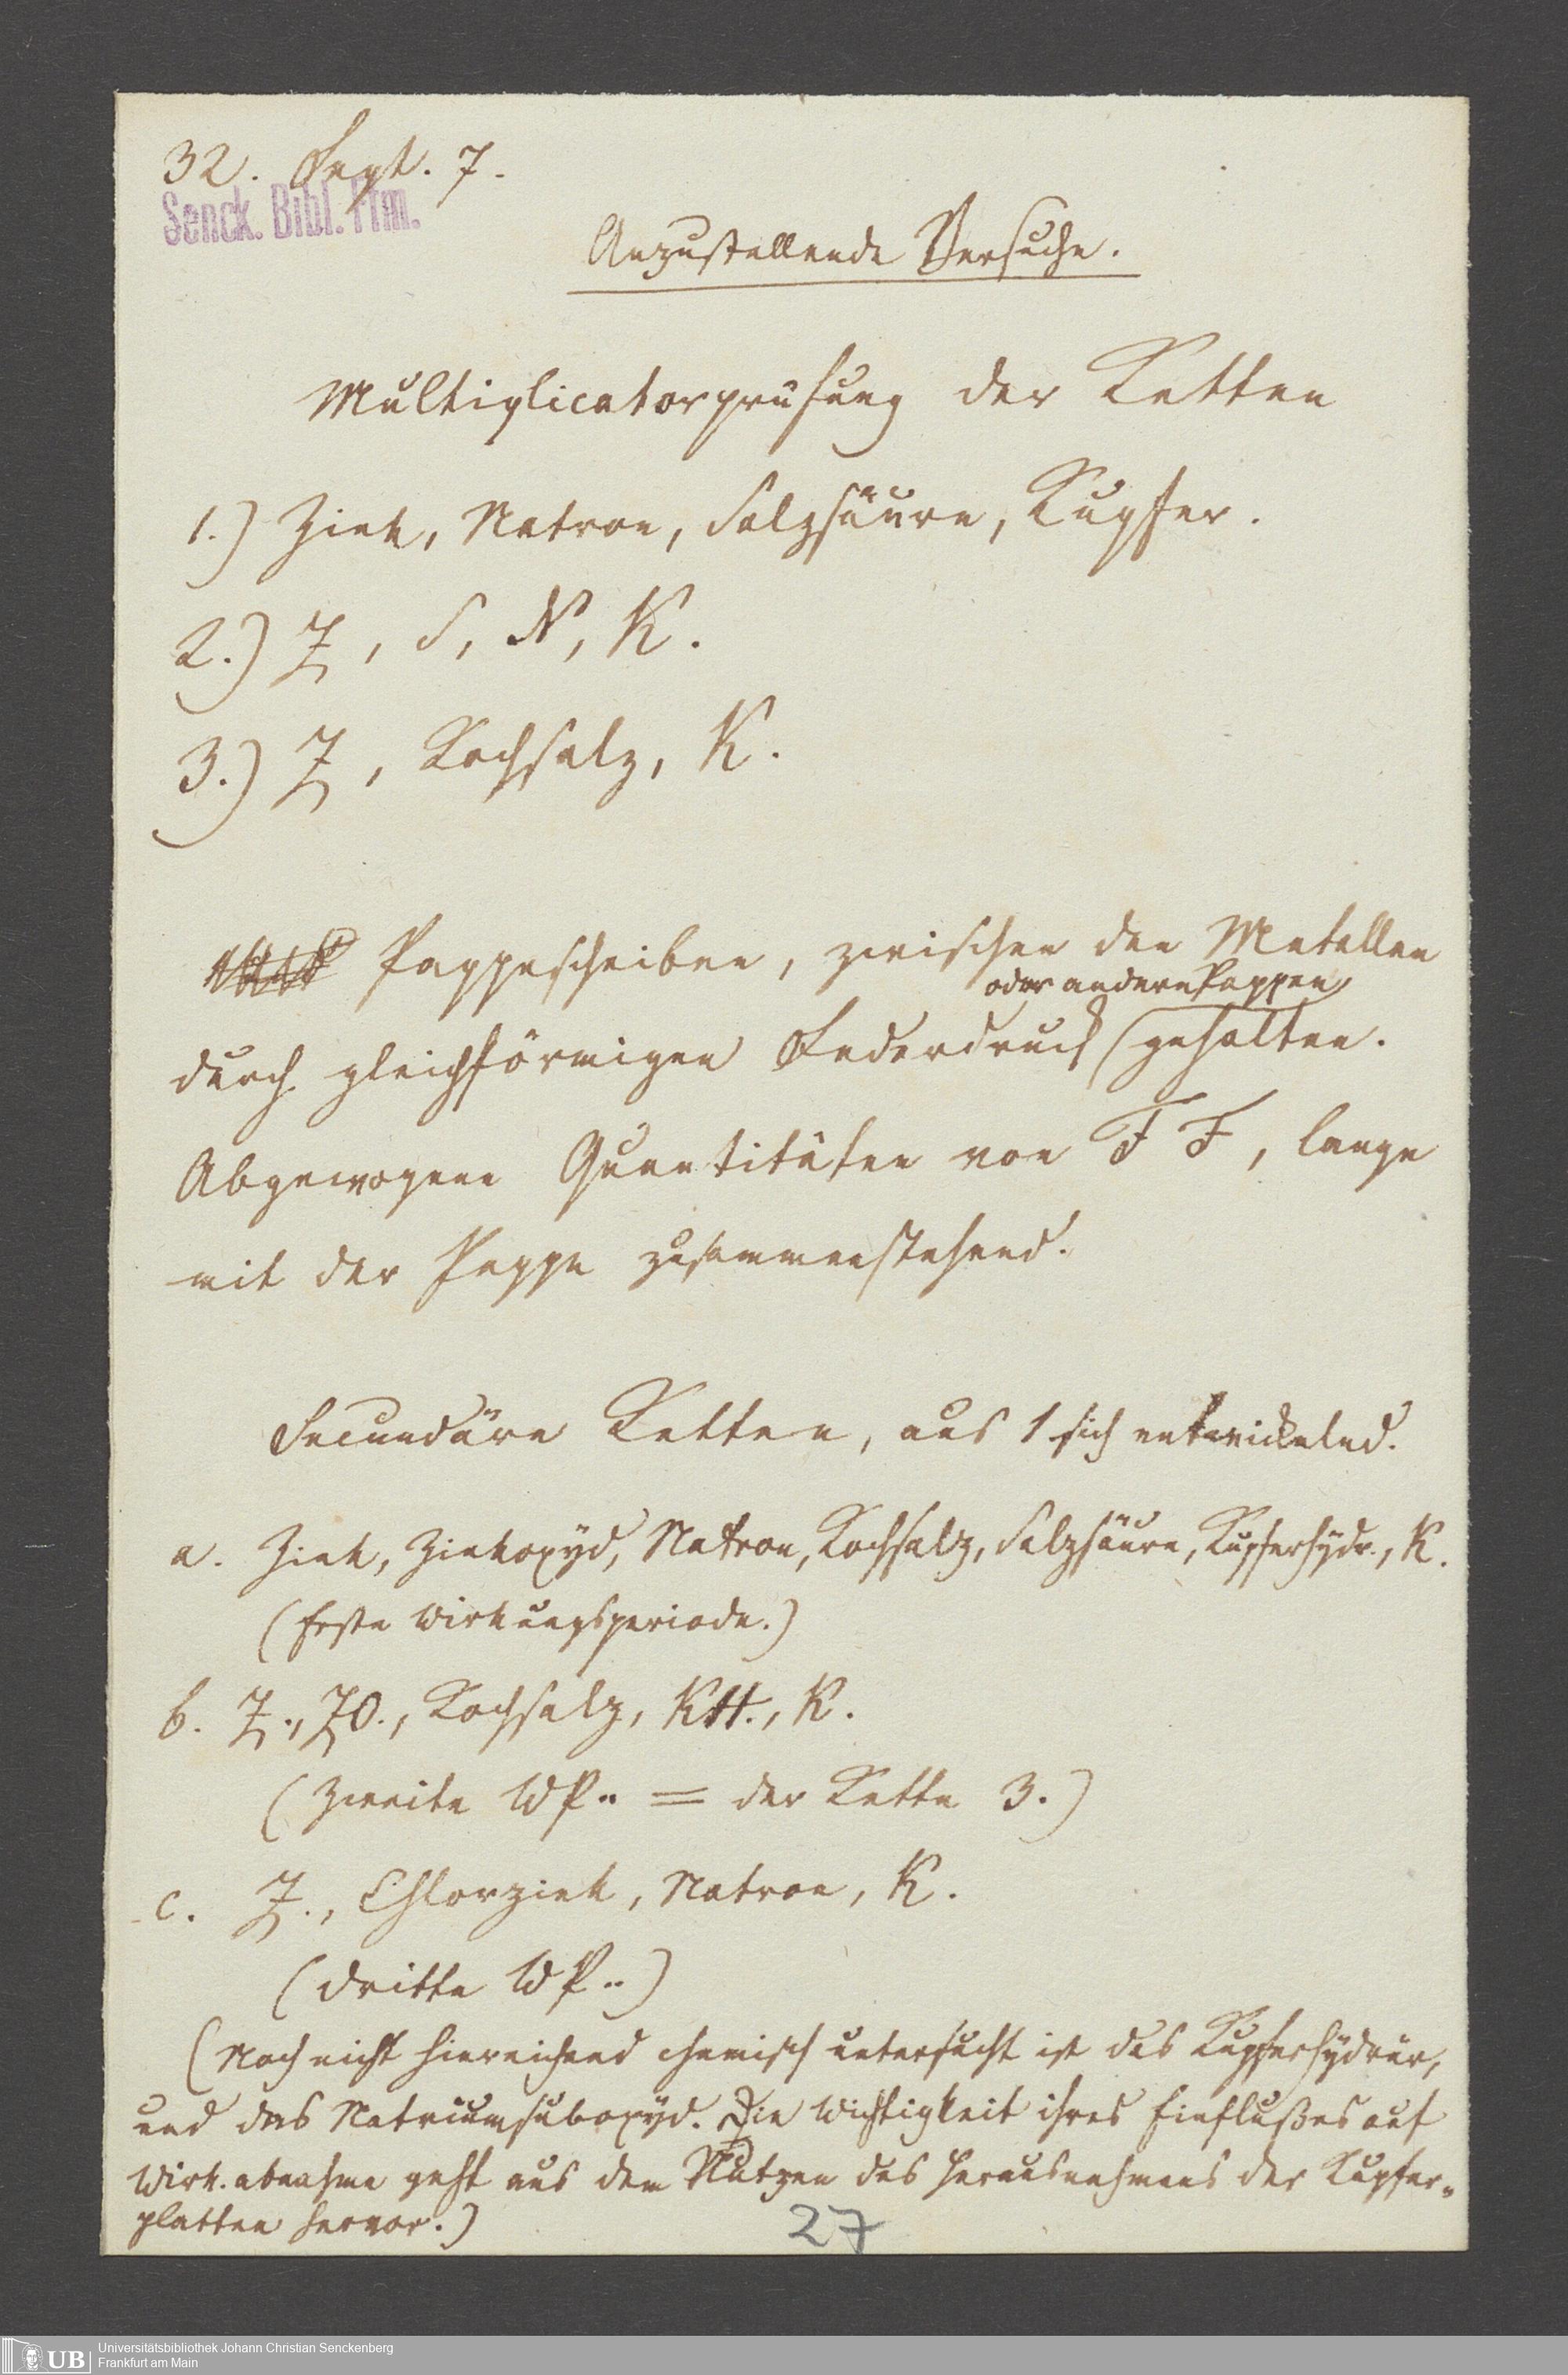 32. Sept. 7.
Senck. Bibl. Ffm.
Anzustellende Versuche.
Multiplicatorprüfung der Ketten
1.) Zink, Natron, Salzsäure, Kupfer.
2.) Z, S, N, K.
3.) Z, Kochsalz, K.
Pappescheiben, zwischen den Metallen
oder andern Pappen
durch gleichförmigen Federdruck (gehalten.
Abgewogene Quantitäten von F F, lange
mit der Pappe zusammenstehend.
Secundäre Ketten, aus 1 sich entwickelnd.
a. Zink, Zinkoxyd, Natron, Kochsalz, Salzsäure, Kupferhydr., K.
(Erste Wirkungsperiode.)
b. Z., ZO., Kochsalz, KH., K.
(Zweite WP.. = der Kette 3.)
c. Z., Chlorzink, Natron, K.
(Dritte WP..)
(Noch nicht hinreichend chemisch untersucht ist das Kupferhydrür,
und das Natriumsuboxyd. Die Wichtigkeit ihres Einflußes auf
Wirk. abnahme geht aus dem Nutzen des Herausnehmens der Kupfer-
platten hervor.)
27
UB
Universitätsbibliothek Johann Christian Senckenberg
Frankfurt am Main